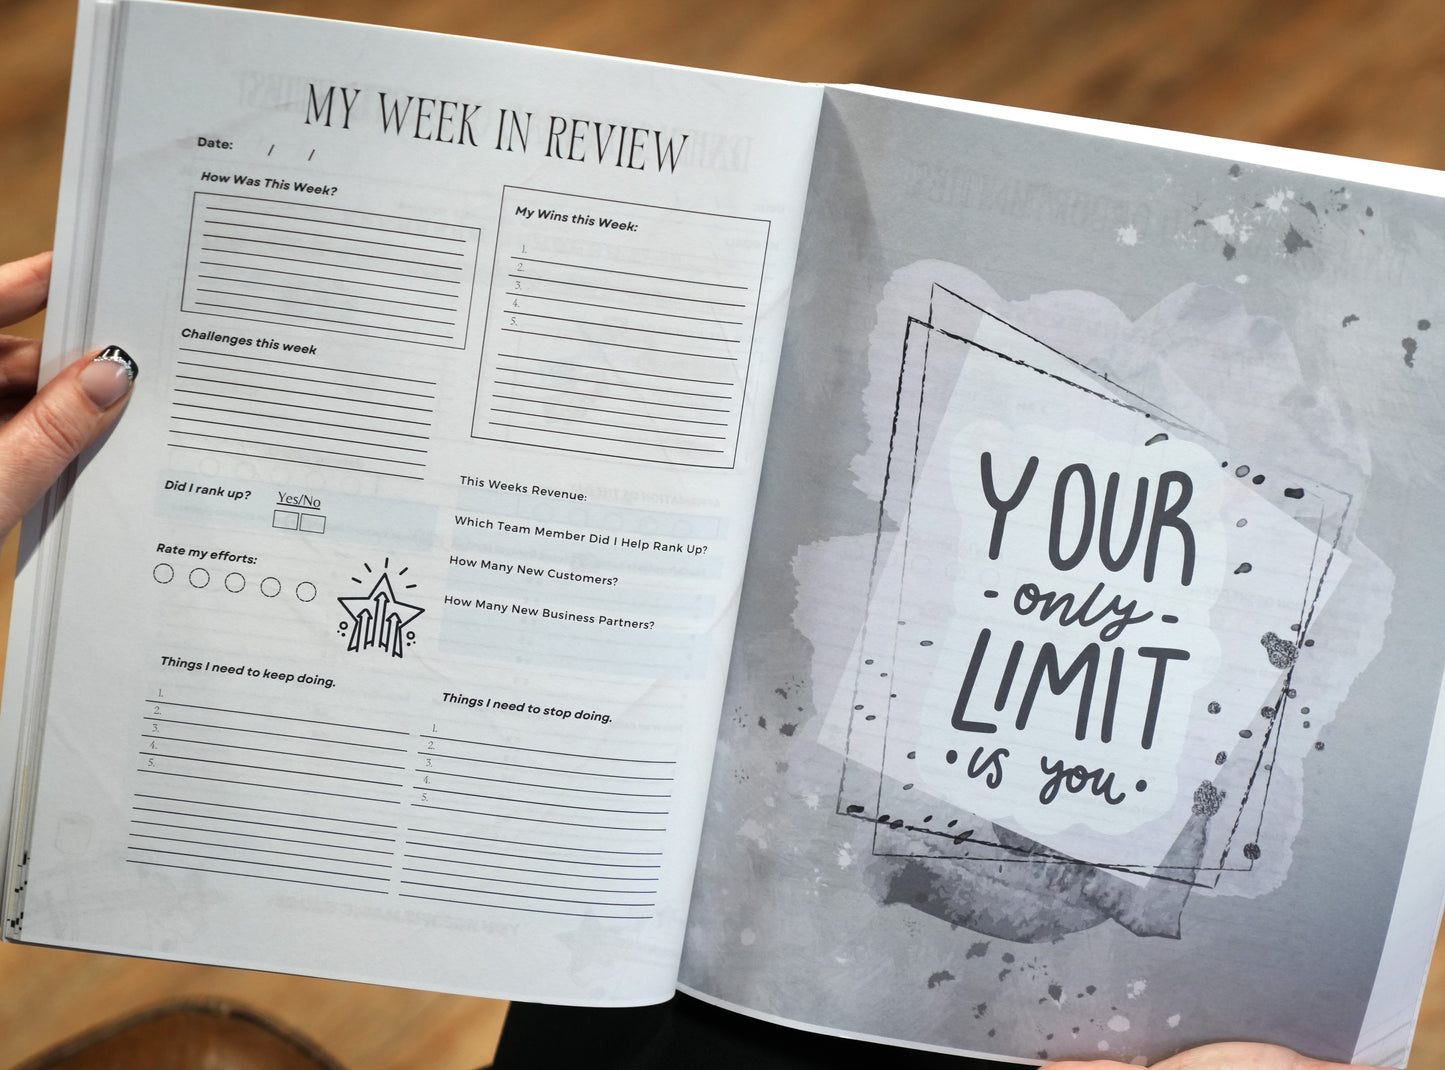 MY WEEK IN REVIEW
Date: / /
How Was This Week?
My Wins this Week:
1.
2.
3.
4.
5.
Challenges this week
Did I rank up? Yes/No
This Weeks Revenue:
Which Team Member Did I Help Rank Up?
How Many New Customers?
How Many New Business Partners?
Rate my efforts:
Things I need to keep doing.
1.
2.
3.
4.
5.
Things I need to stop doing.
1.
2.
3.
4.
5.
YOUR
- only -
LIMIT
• is you •